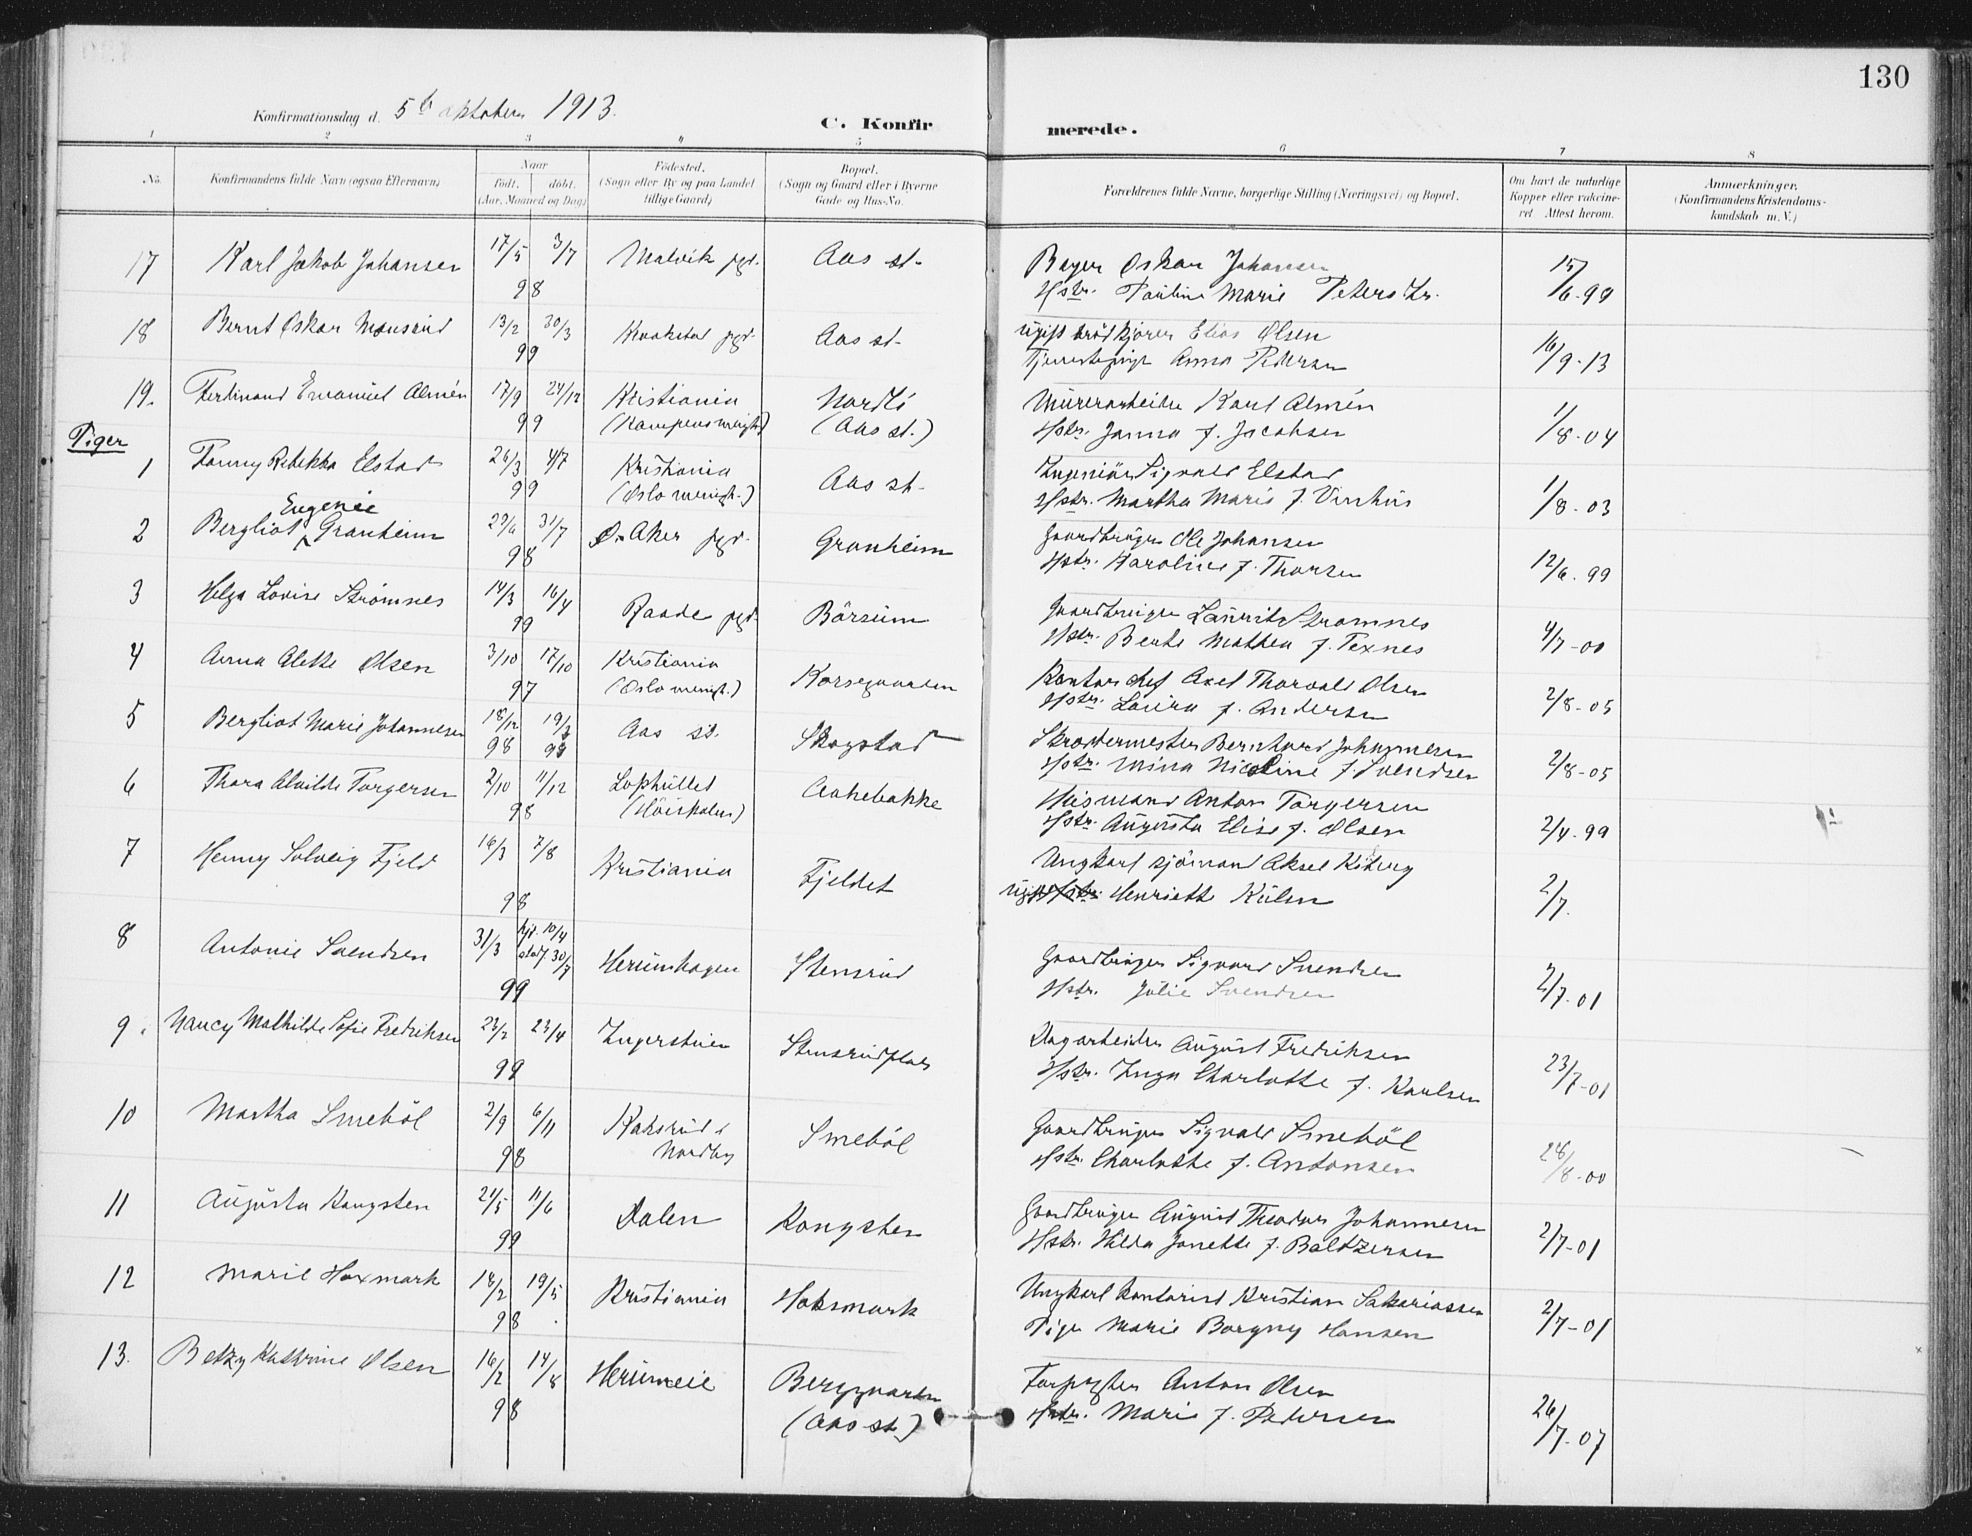 130
Konfirmationsdag d. 5 oktober 1913.
C. Konfirmerede.
1 2 3 4 5 6 7 8
No.
Konfirmandens fulde Navn (ogsaa Efternavn)
Naar
födt. döbt.
(Aar, Maaned og Dag)
Födested.
(Sogn eller By og paa Landet
tillige Gaard)
Bopæl.
(Sogn og Gaard eller i Byerne
Gade og Hus-No.
Forældrenes fulde Navne, borgerlige Stilling (Næringsvei) og Bopæl.
Om havt de naturlige
Kopper eller vakcine-
ret Attest herom.
Anmærkninger.
(Konfirmandens Kristendoms-
kundskab m. V.)
17 Karl Jakob Johansen 17/5 3/7 98 Malvik pgd. Aas st. Bager Oskar Johansen
Hstr. Pauline Marie Petersdtr. 15/6-99
18 Bernt Oskar Mausrud 13/2 30/3 99 Kraakstad pgd. Aas st. Ugift brødkjører Elias Olsen
Tjenestepige Anna Pedersen 16/9-13
19. Ferdinand Emanuel Almén 17/9 24/12 99 Kristiania
(Kampens menigh.) Nordli
(Aas st.) Murerarbeider Karl Almén
Hstr. Janna f. Jacobsen 1/8-04
Piger
1 Fanny Rebekka Elstad 26/3 4/7 99 Kristiania
(Oslo menigh.) Aas st. Ingeniør Sigvald Elstad
Hstr. Martha Marie f. Vinhus 1/8-03
2 Bergliot Eugenie Granheim 29/6 31/7 98 Ø. Aker pgd. Granheim Gaardbruger Ole Johansen
Hstr. Karoline f. Thorsen 12/6.99
3 Helga Lovise Strømnes 14/3 16/4 99 Raade pgd. Börsum Gaardbruger Laurits Strømnes
Hstr. Berthe Mathea f. Texnes 4/7-00
4 Anna Alette Olsen 3/10 17/10 97 Kristiania
(Oslo menigh.) Korsegaarden Kontorchef Axel Thorvald Olsen
Hstr. Laura f. Andersen 2/8-05
5 Bergliot Marie Johannesen 18/12 98 19/3 99 Aas st. Skogstad Skrædermester Bernhard Johannesen
Hstr. Mina Nicoline f. Svendsen 2/8-05
6 Thora Alvilde Torgersen 2/10 11/12 98 Lophullet
(Höiskolen) Aakebakke Husmand Anton Torgersen
Hstr. Augusta Elise f. Olsen 2/4.99
7 Henny Solveig Fjeld 16/3 7/8 98 Kristiania Fjeldet Ungkarl sjömand Aksel Kiberg
ugift Henriette Külen 2/7.
8 Antonie Svendsen 31/3 hjd. 10/4 stadf 30/7 99 Herumhagen Stensrud Gaardbruger Sigvard Svendsen
Hstr. Julie Svendsen 2/7.01
9. Nancy Mathilde Sofie Fredriksen 23/2 23/4 99 Ingerstuen Stensrudplads Dagarbeider August Fredriksen
Hstr. Inga Charlotte f. Karlsen 23/7-01
10 Martha Smeböl 2/9 6/11 98 Kaksrud i
Nordby Smeböl Gaardbruger Sigvald Smeböl
Hstr. Charlotte f. Antonsen 28/8-00
11 Augusta Kongsten 24/5 11/6 99 Dalen Kongsten Gaardbruger August Theodor Johannesen
Hstr. Hilda Janette f. Baltzersen 2/7-01
12 Marie Haxmark 18/2 19/5 98 Kristiania Haksmark Ungkarl kontorist Kristian Sakariassen
Pige Marie Borgny Hansen 2/7-01
13. Betzy Kathrine Olsen 16/2 14/8 98 Herumeie Berggaarden
(Aas st.) Forpagter Anton Olsen
Hstr. Marie f. Pedersen 26/7.07